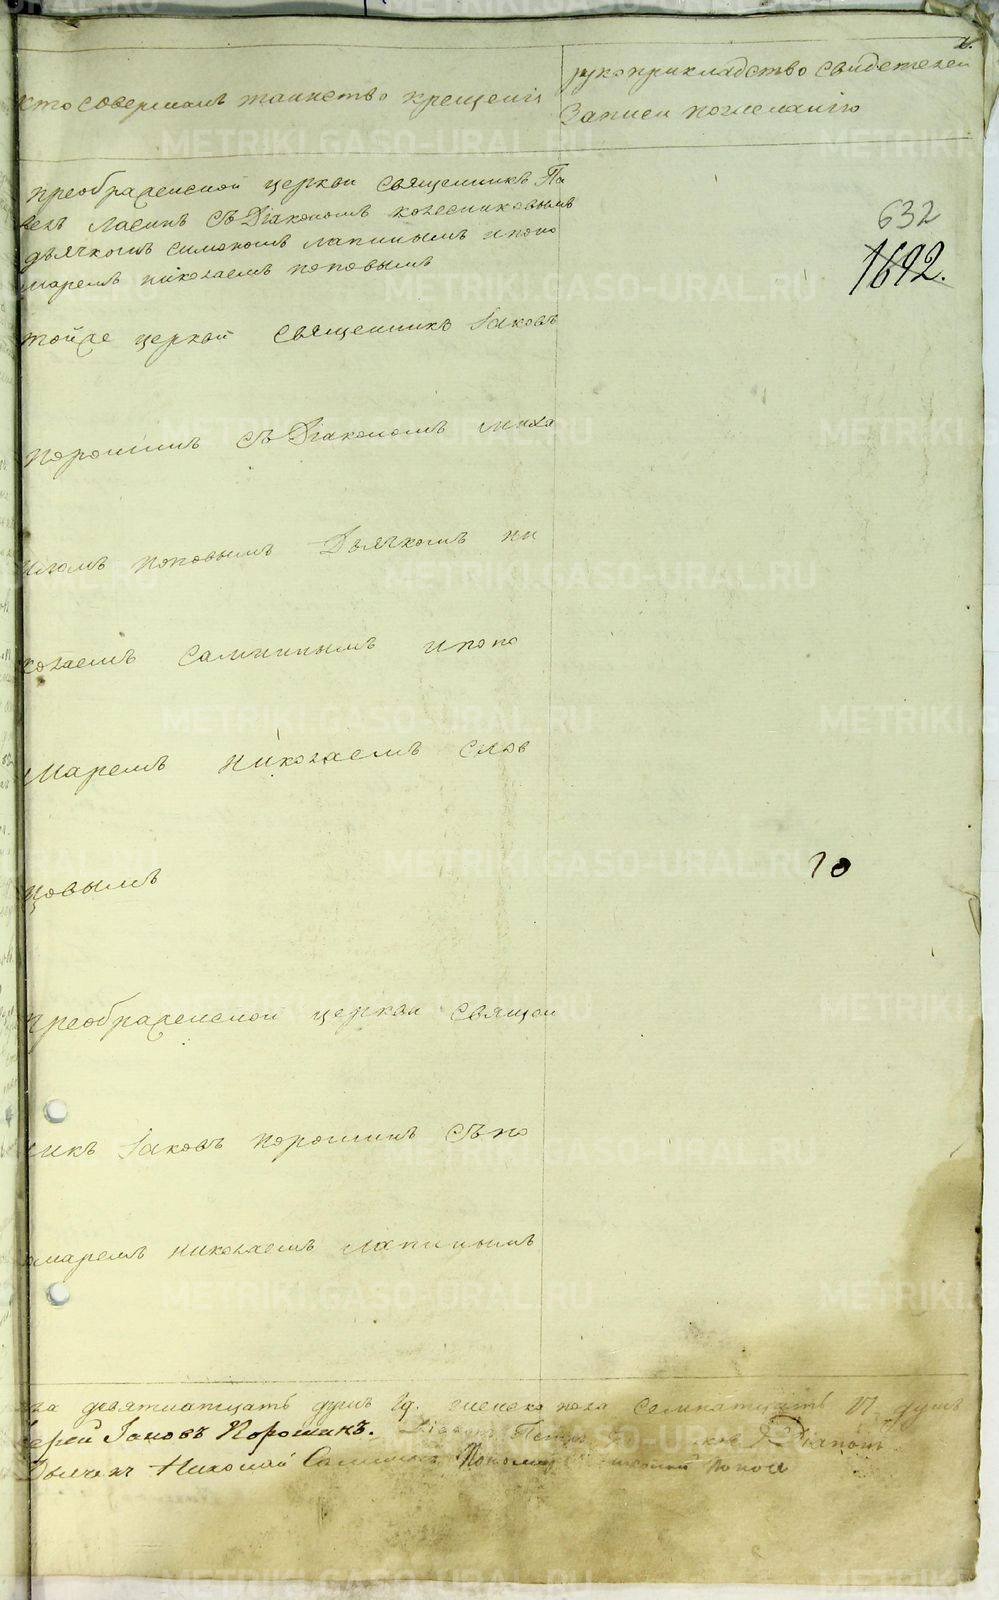 кто совершалъ таинство крещенія
рукоприкладство свидетелей
записи пожеланію
преображенской церкви священникъ Па
велъ съ Діакономъ колесниковымъ
дьячкомъ симономъ лапинымъ ипоно
маремъ николаемъ поповымъ
632
1692.
тойже церкви священникъ Іаковъ
порошинъ съ Діакономъ миха
иломъ поповымъ Дьячкомъ ни
колаемъ ипоно
маремъ николаемъ слов
цовымъ
10
преображенской церкви священ
никъ Іаковъ порошинъ съ по
номаремъ николаемъ лапинымъ
девятнатцать душъ 19. женска пола семнатцать 17 душъ
Іерей Іаковъ Порошинъ. Діаконъ
Дьячекъ Николай
METRIKI.GASO-URAL.RU